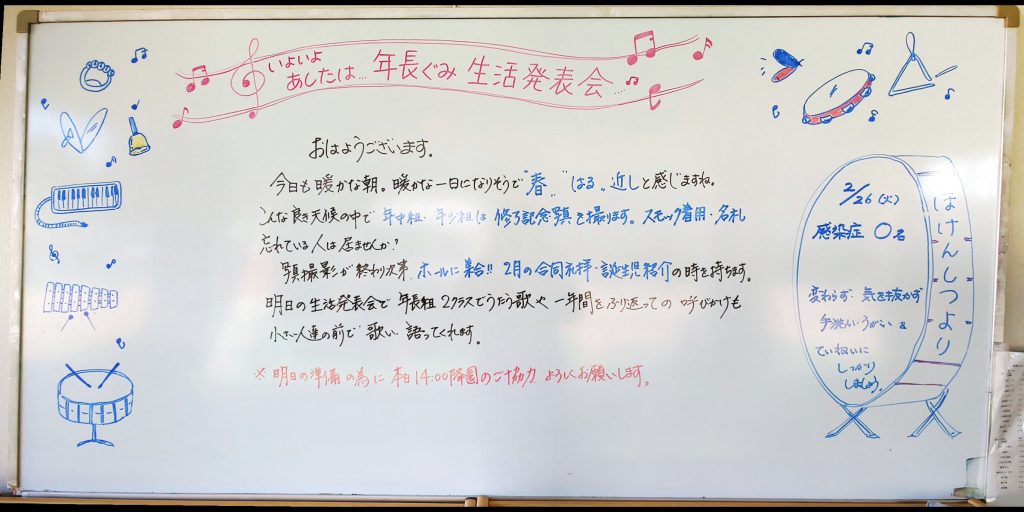 いよいよ
あしたは… 年長ぐみ 生活発表会…
おはようございます。
今日も暖かな朝。暖かな一日になりそうで"春"はる。近しと感じますね。
こんな良き天候の中で 年中組・年少組は 修了記念写真を撮ります。スモック着用・名札
忘れている人は居ませんか?
写真撮影が終わり次第、ホールに集合!! 2月の合同礼拝・誕生児紹介の時を持ちます。
明日の生活発表会で 年長組2クラスでうたう歌や 一年間をふり返っての 呼びかけも
小さい人達の前で 歌い 語ってくれます。
※明日の準備の為に 本日14:00降園のご協力 よろしくお願いします。
ほけんしつより
2/26(火)
感染症 0名
変わらず・気を抜かず
手洗い・うがいを
ていねいに
しっかり
しましょう。